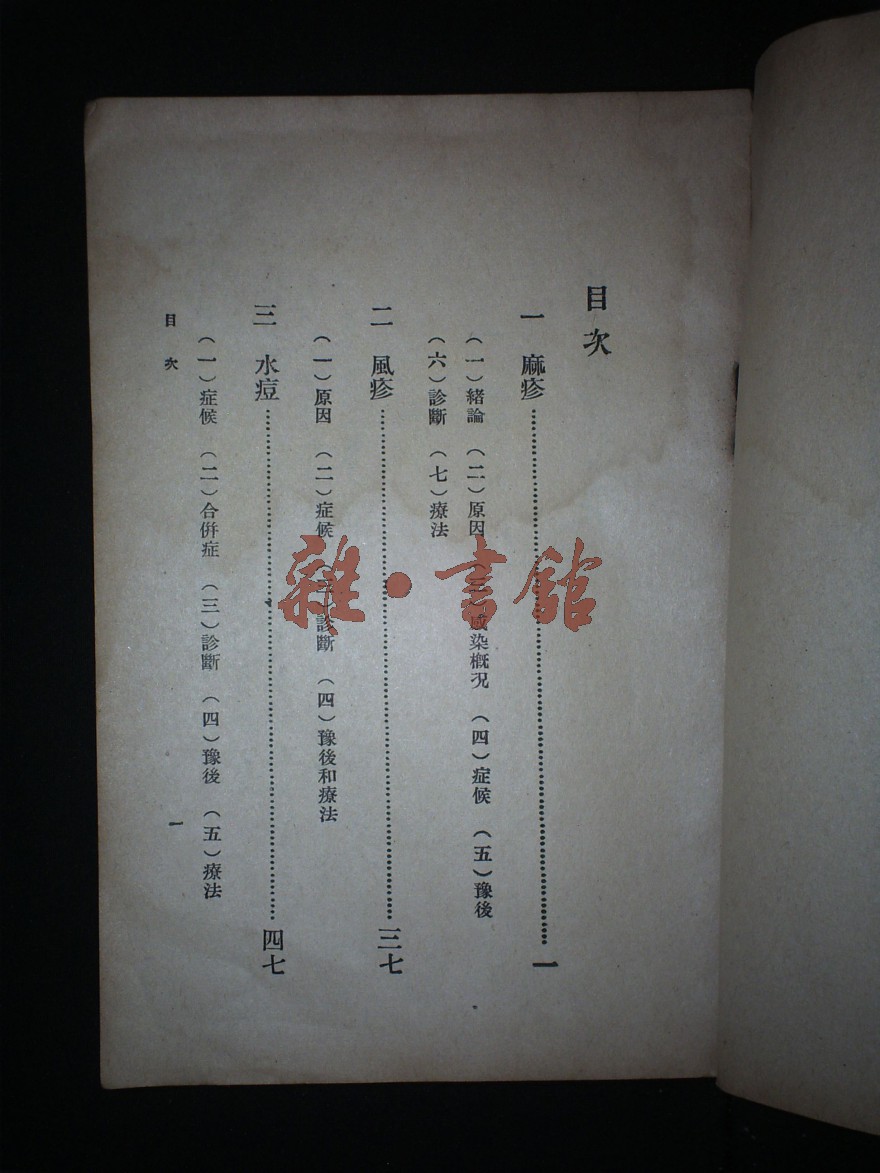 目次
一 麻疹……一
（一）緒論 （二）原因 （三）感染概況 （四）症候 （五）豫後
（六）診斷 （七）療法
二 風疹……三七
（一）原因 （二）症候 （三）診斷 （四）豫後和療法
三 水痘……四七
（一）症候 （二）合併症 （三）診斷 （四）豫後 （五）療法
目次 一
雜·書館